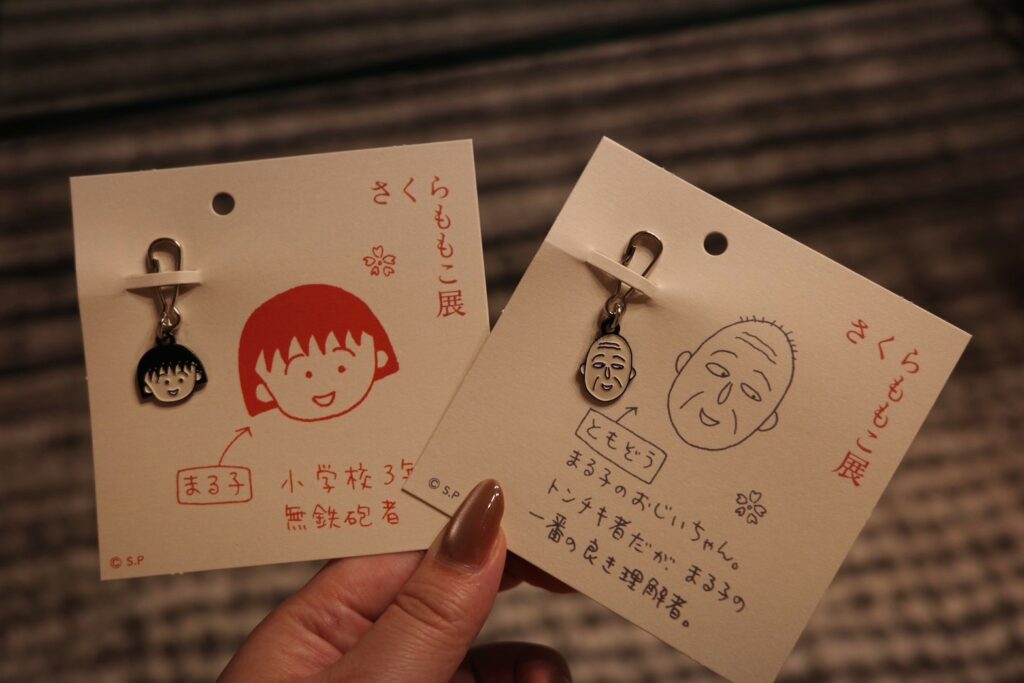 さくら
ももこ展
まる子
小学校3年
無鉄砲者
© S.P
さくら
ももこ展
ともぞう
まる子のおじいちゃん。
トンチキ者だが、まる子の
一番の良き理解者。
© S.P